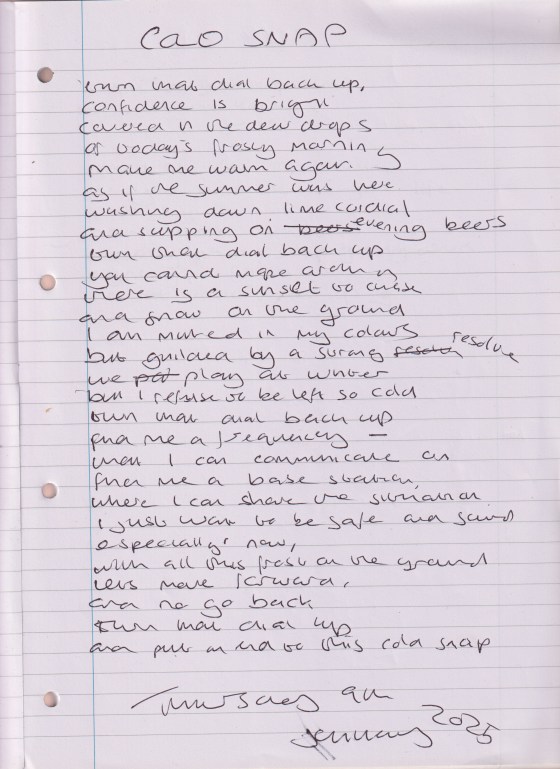 COLD SNAP
turn that dial back up,
confidence is bright
covered in the dew drops
of today's frosty morning
make me warm again.
as if the summer was here
washing down lime cordial
and supping on evening beers
turn that dial back up
you could
there is a sunset to chase
and snow on the ground
I am muted in my colours
but guilded by a strong resolve
we play at winter
but I refuse to be left so cold
turn that dial back up
find me a frequency —
that I can communicate on
find me a base station,
where I can share the situation
I just want to be safe and sound
especially now,
with all this frost on the ground
lets move forward,
and no go back
turn that dial up
and put an end to this cold snap
Thursday 9th
January 2025